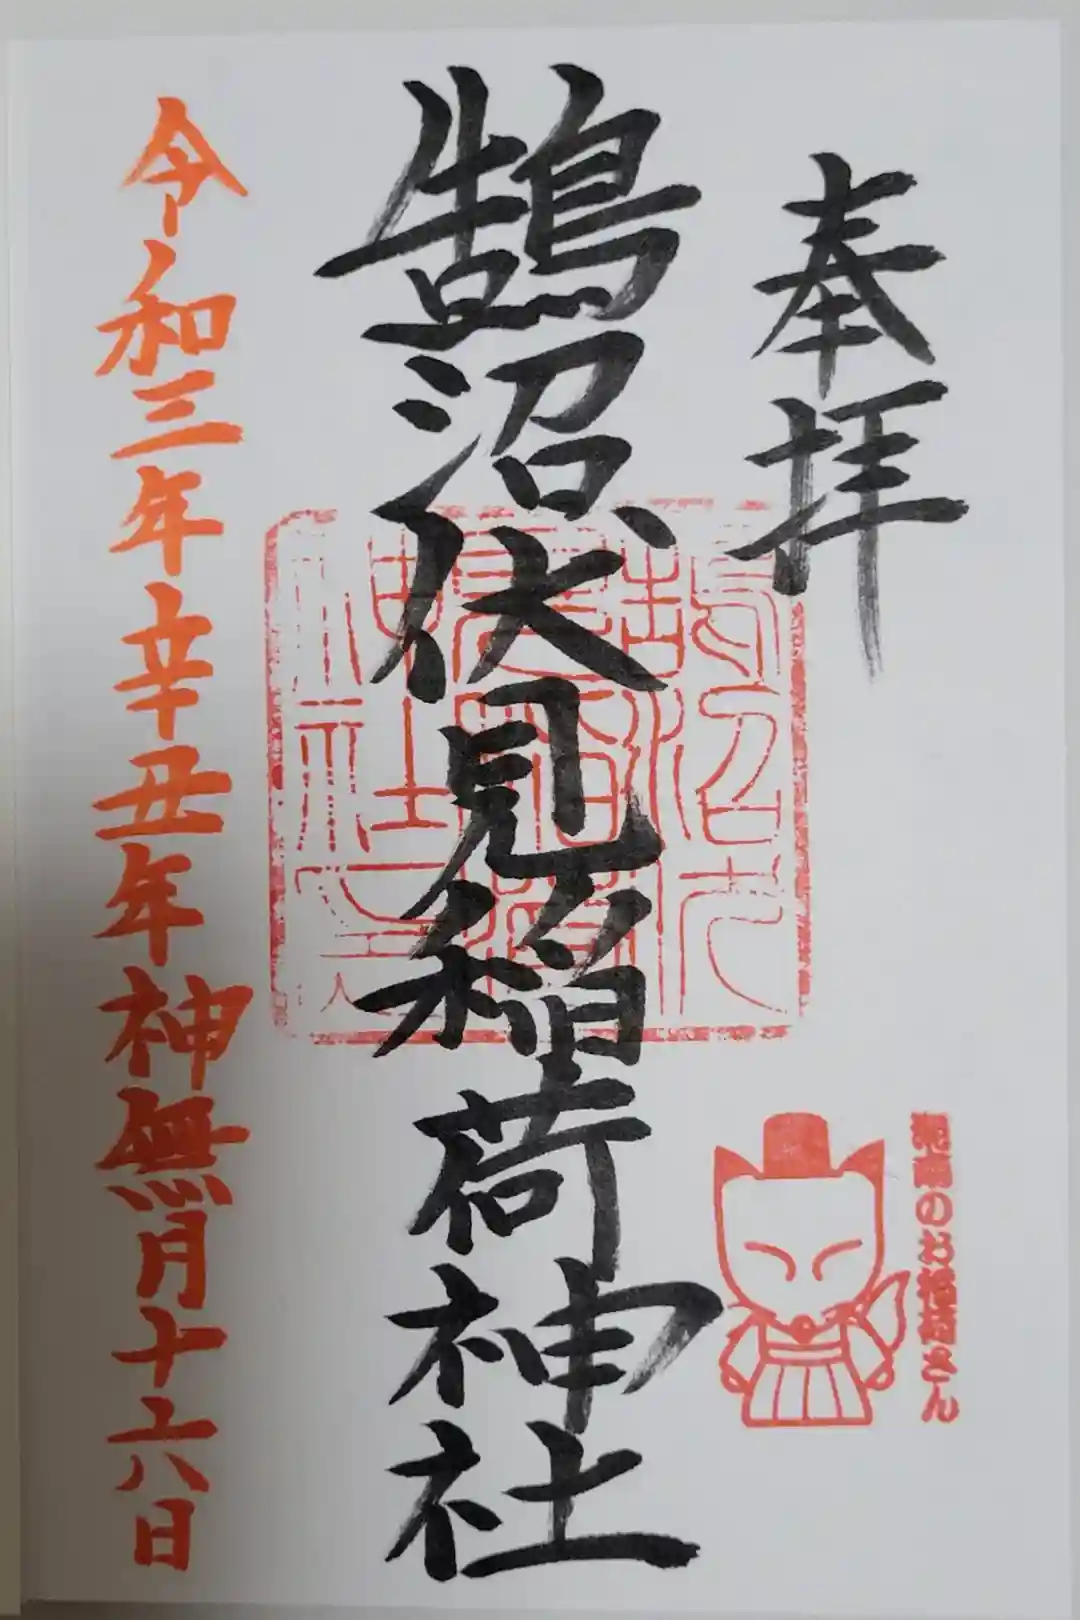 奉拝
鵠沼伏見稲荷神社
令和三年辛丑年神無月十六日
湘南のお稲荷さん